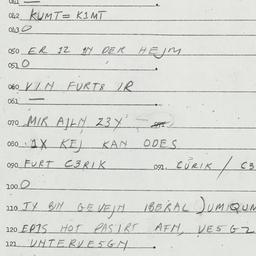 042 KUMT = KIMT
043 O
050 ER IZ IN DER HEJM
051 O
060 VIN FURTS IR
061 —
070 MIR AJLN Z3X
080 IX KEJ KAN ODES
090 FURT C3RIK 091 CURIK / C3
100 O
110 IX BIN GEVEJN IBERAL) UMIQUM
120 EPIS HOT PASIRT AFN, VE5GZ
121 UNTERVE5GN